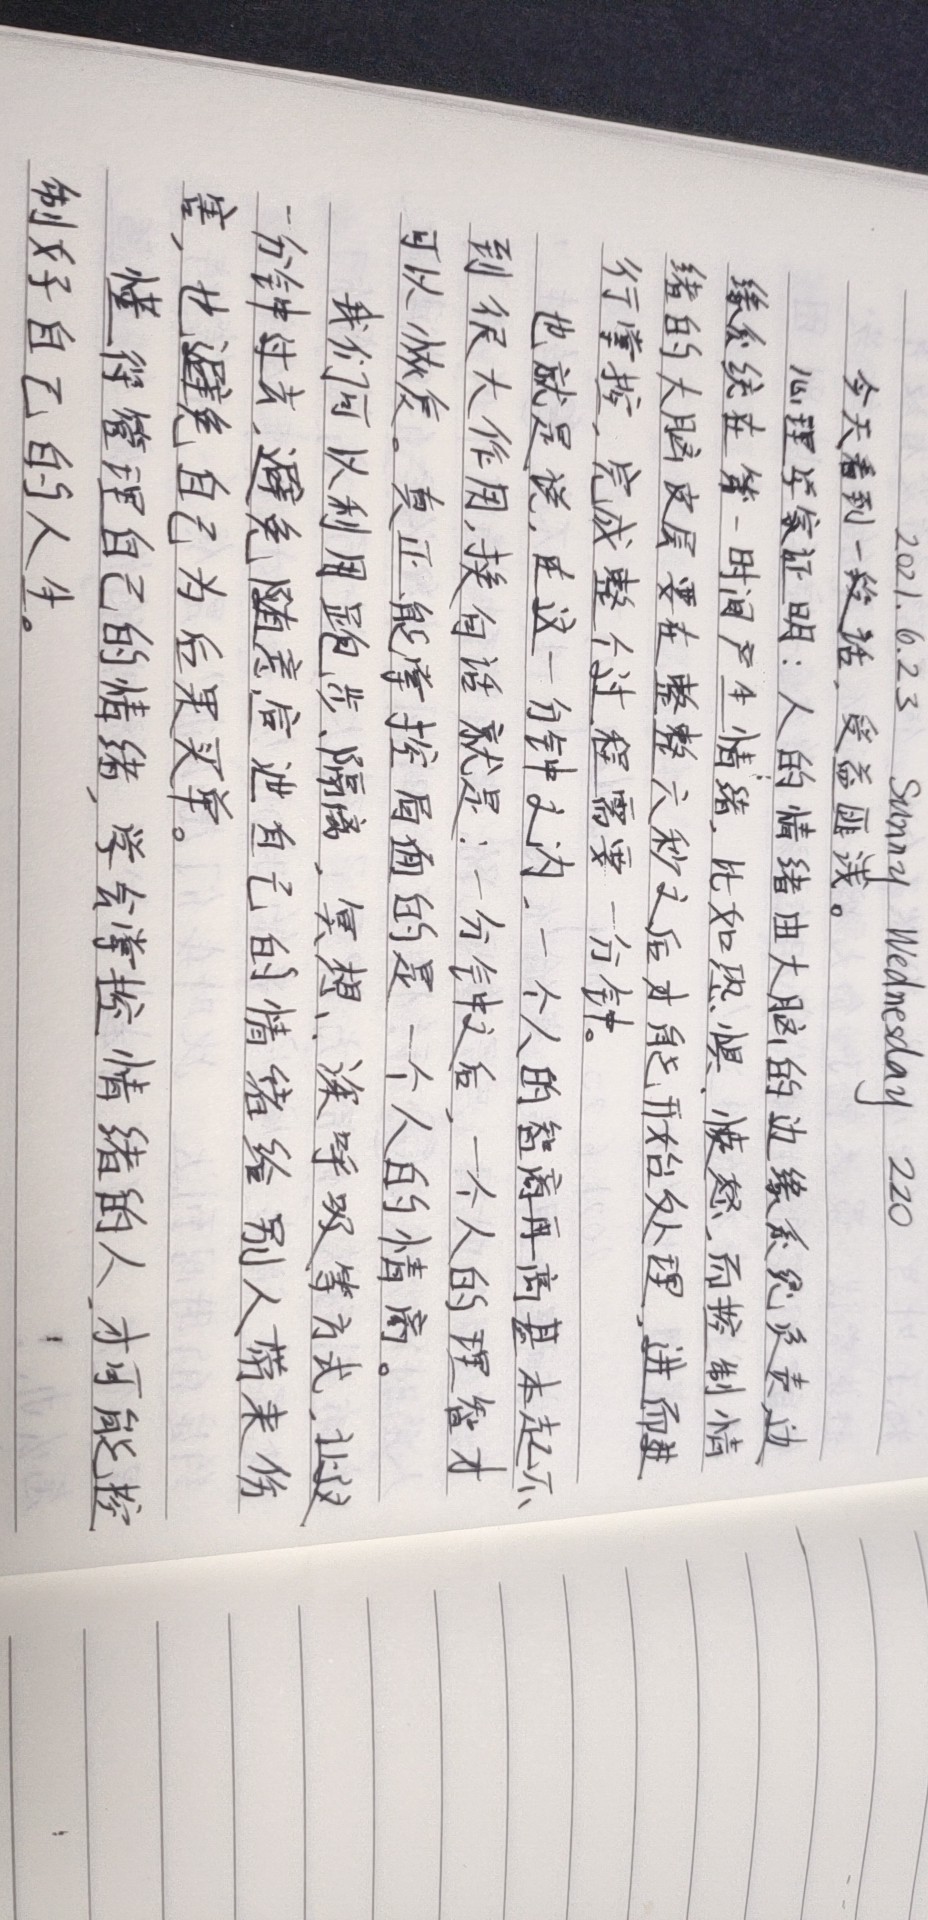 2021.6.23 Sunny Wednesday 220
今天看到一段话，受益匪浅。
心理学家证明：人的情绪由大脑的边缘系统负责，边
缘系统在第一时间产生情绪，比如恐惧、愤怒，而控制情
绪的大脑皮层要在整整六秒之后才能开始处理，进而进
行掌控，完成整个过程需要一分钟。
也就是说，在这一分钟之内，一个人的智商再高基本起不
到很大作用，换句话就是：一分钟之后，一个人的理智才
可以恢复。真正能掌控局面的是一个人的情商。
我们可以利用跑步、隔离、冥想、深呼吸等方式，让这
一分钟过去，避免随意宣泄自己的情绪给别人带来伤
害，也避免自己为后果买单。
懂得管理自己的情绪，学会掌控情绪的人，才可能控
制好自己的人生。